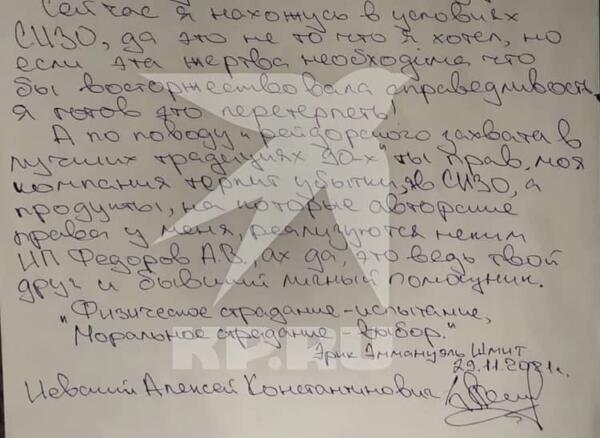 Сейчас я нахожусь в условиях
СИЗО, да это не то что я хотел, но
если эта жертва необходима что
бы восторжествовала справедливость
я готов это перетерпеть!
А по поводу "рейдорского захвата в
лучших традициях 90-х" ты прав, моя
компания терпит убытки, я в СИЗО, а
продукты, на которые авторские
права у меня, реализуются неким
ИП Федоров А.В., ах да, это ведь твой
друг и бывший личный помощник.
"Физическое страдание - испытание,
Моральное страдание - выбор."
Эрик Эммануэль Шмит
29.11.2021г.
Алексей Константинович
KP.RU